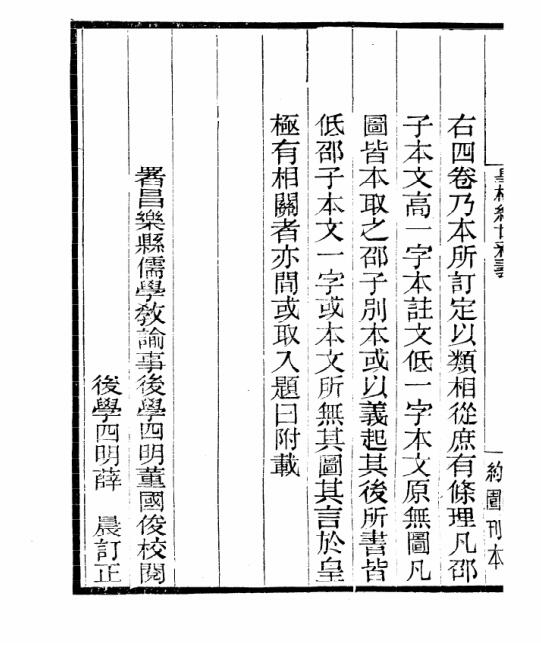 右四卷乃本所訂定以類相從庶有條理凡邵
子本文高一字本註文低一字本文原無圖凡
圖皆本取之邵子別本或以義起其後所書皆
低邵子本文一字或本文所無其圖其言於皇
極有相關者亦間或取入題曰附載
署昌樂縣儒學敎諭事後學四明董國俊校閱
後學四明薛　晨訂正
約圃刊本